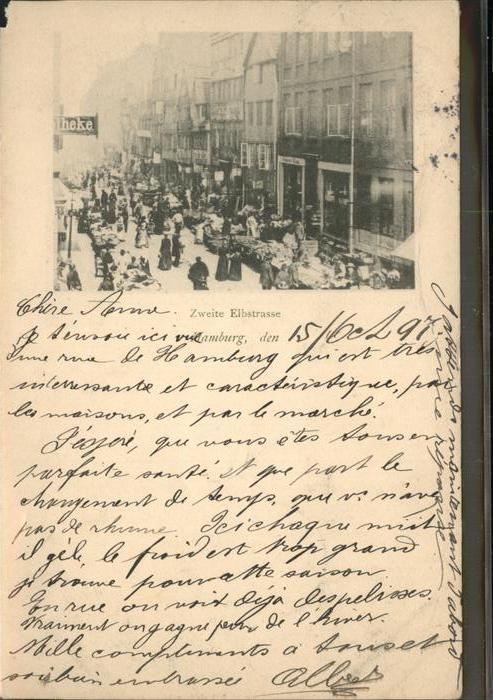 theke
Zweite Elbstrasse
Hamburg, den 15/Oct 97
Chère Anna.
Je t'envoie ici vue
d'une rue de Hamburg qui est très
intéressante et caractéristique, par
les maisons, et par le marché.
J'éspère, que vous êtes tous en
parfaite santé. et que part le
changement de temps, que vs n'avez
pas de rhume. Ici chaque nuit
il gele, le froid est trop grand
je trouve pour cette saison.
En rue on voit déjà des pelisses.
Vraiment on gagne peur de l'hiver.
Mille compliments à tous et
sois bien embrassée Albert
J'attends maintenant